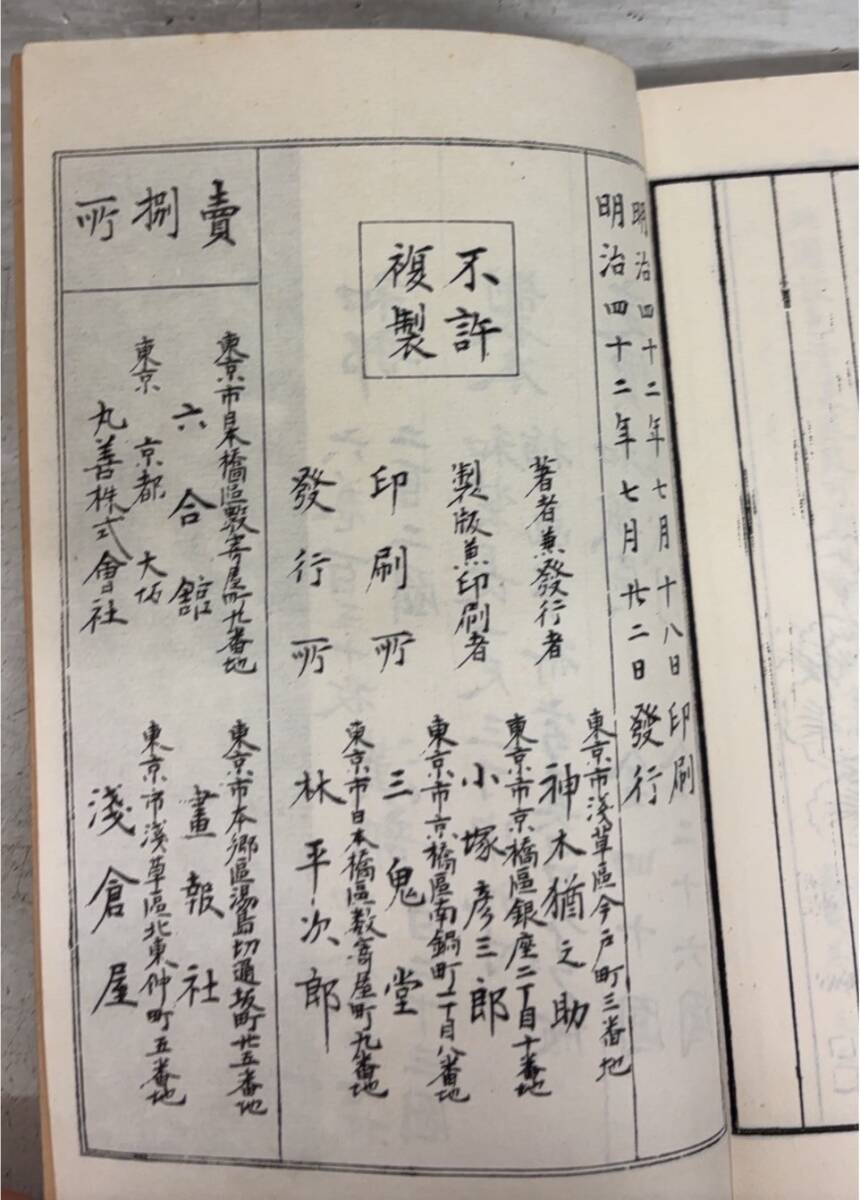 明治四十二年七月十八日印刷
明治四十二年七月廿二日發行
不許
複製
著者兼發行者
東京市淺草區今戸町三番地
神木猶之助
製版兼印刷者
東京市京橋區銀座二丁目十番地
小塚彦三郎
印刷所
東京市京橋區南鍋町二丁目八番地
三鬼堂
發行所
東京市日本橋區数寄屋町九番地
林平次郎
賣捌所
東京市日本橋區數寄屋町九番地
六合舘
東京 京都 大阪
丸善株式會社
東京市本郷區湯島切通坂町廿五番地
畫報社
東京市淺草區北東仲町五番地
淺倉屋